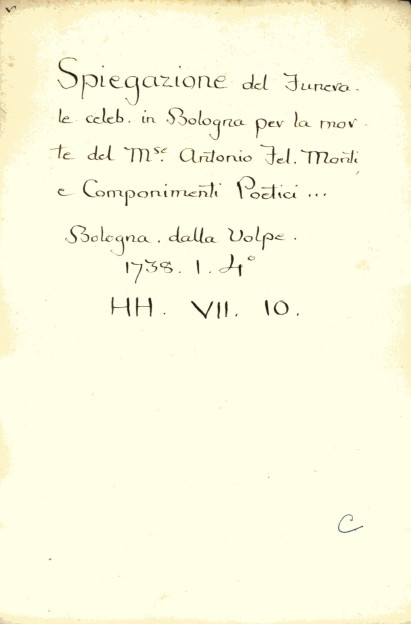 Spiegazione del Funera.
le celeb. in Bologna per la mor.
te del Mse. Antonio Fel. Monti
e Componimenti Poetici ...
Bologna. dalla Volpe.
1738. 1. 4°
HH. VII. 10.
C